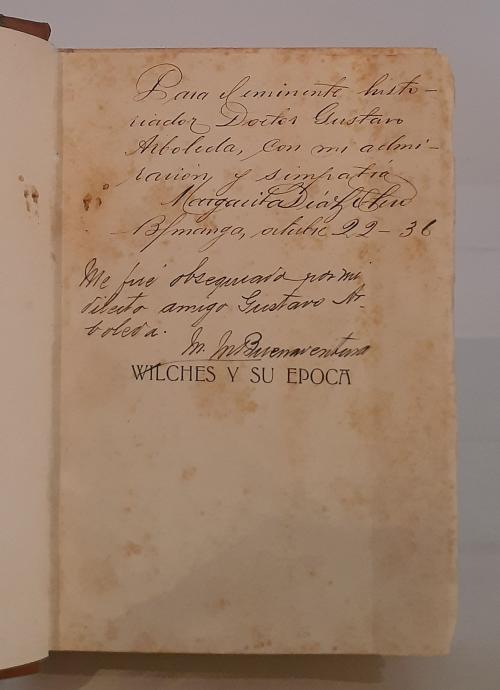 Para el eminente histo-
riador Doctor Gustavo
Arboleda, con mi admi-
ración y simpatía
Margarita Díaz Otero
B/manga, octubre 22-36
Me fué obsequiada por mi
dilecto amigo Gustavo Ar-
boleda.
M. M. Buenaventura
WILCHES Y SU EPOCA